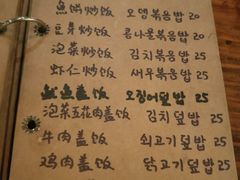 鱼饼炒饭 오뎅볶음밥 20
豆芽炒饭 콩나물볶음밥 20
泡菜炒饭 김치볶음밥 25
虾仁炒饭 새우볶음밥 25
鱿鱼盖饭 오징어덮밥 25
泡菜五花肉盖饭 김치덮밥 25
牛肉盖饭 쇠고기덮밥 25
鸡肉盖饭 닭고기덮밥 25